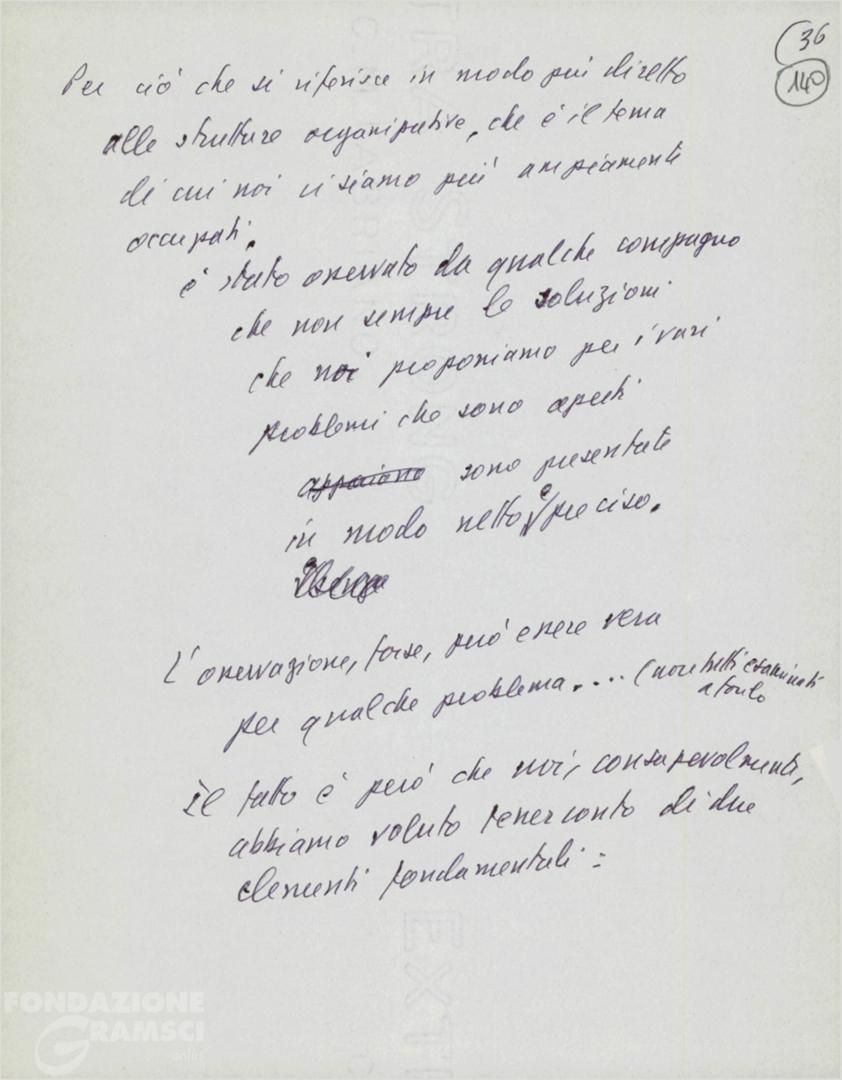 36
140
Per ciò che si riferisce in modo più diretto
alle strutture organizzative, che è il tema
di cui noi ci siamo più ampiamente
occupati,
è stato osservato da qualche compagno
che non sempre le soluzioni
che noi proponiamo per i vari
problemi che sono aperti
appaiono sono presentate
in modo netto e preciso.
L'osservazione, forse, può essere vera
per qualche problema.... (non tutti esaminati
a fondo
Il fatto è però che noi, consapevolmente,
abbiamo voluto tener conto di due
elementi fondamentali:
FONDAZIONE
GRAMSCI